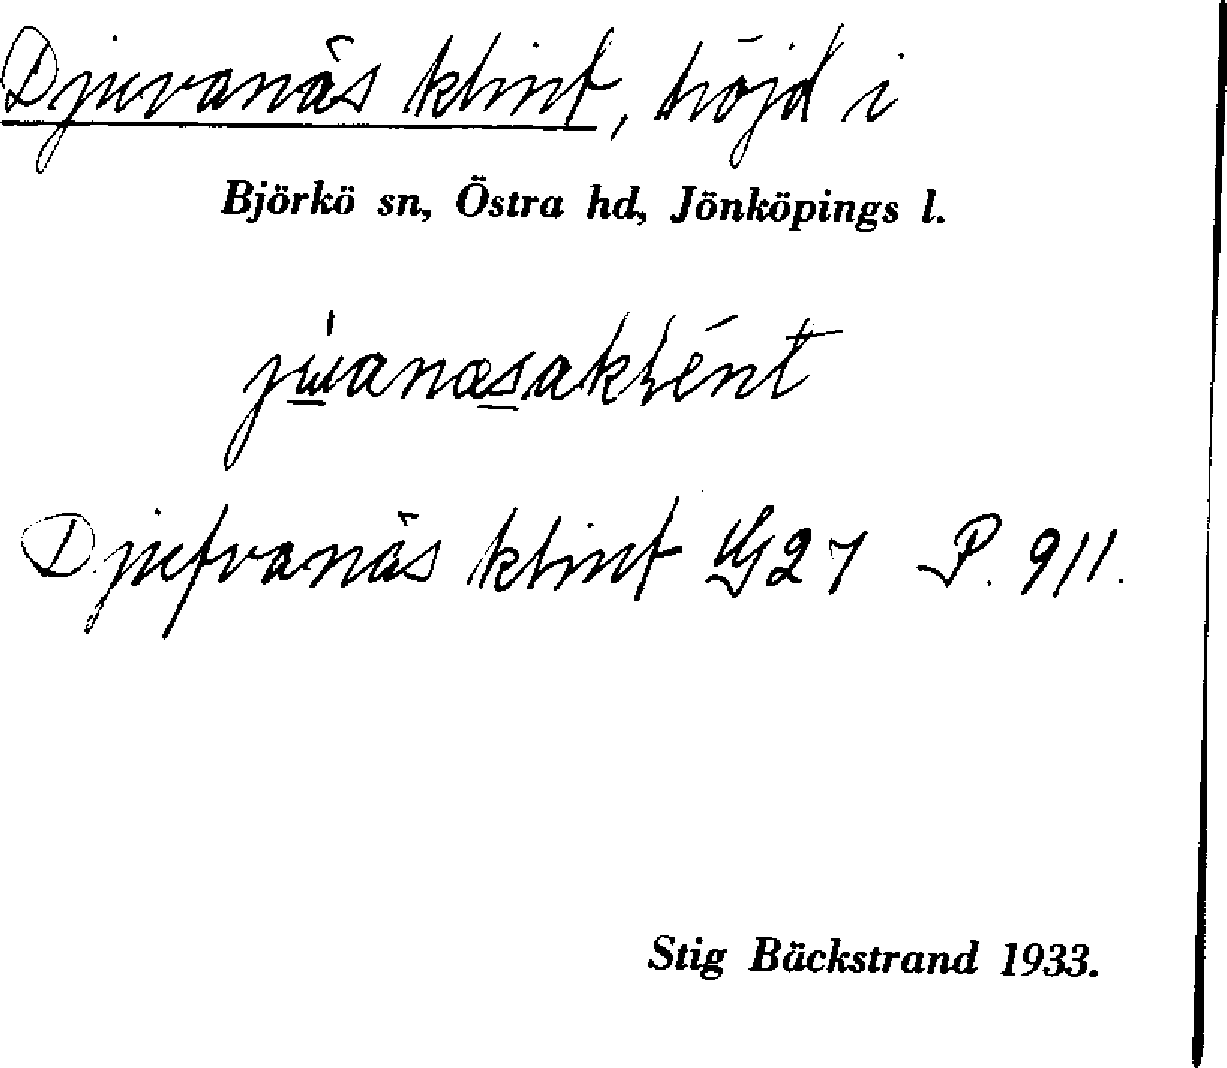 Djuvanäs klint, höjd i
Björkö sn, Östra hd, Jönköpings l.
Djufvanäs klint G27 P. 911.
Stig Bäckstrand 1933.